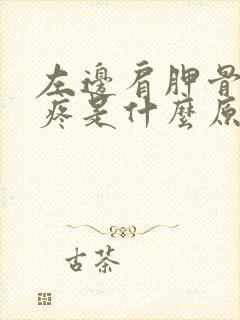 左邊肩胛骨
疼是什麼原
古茶